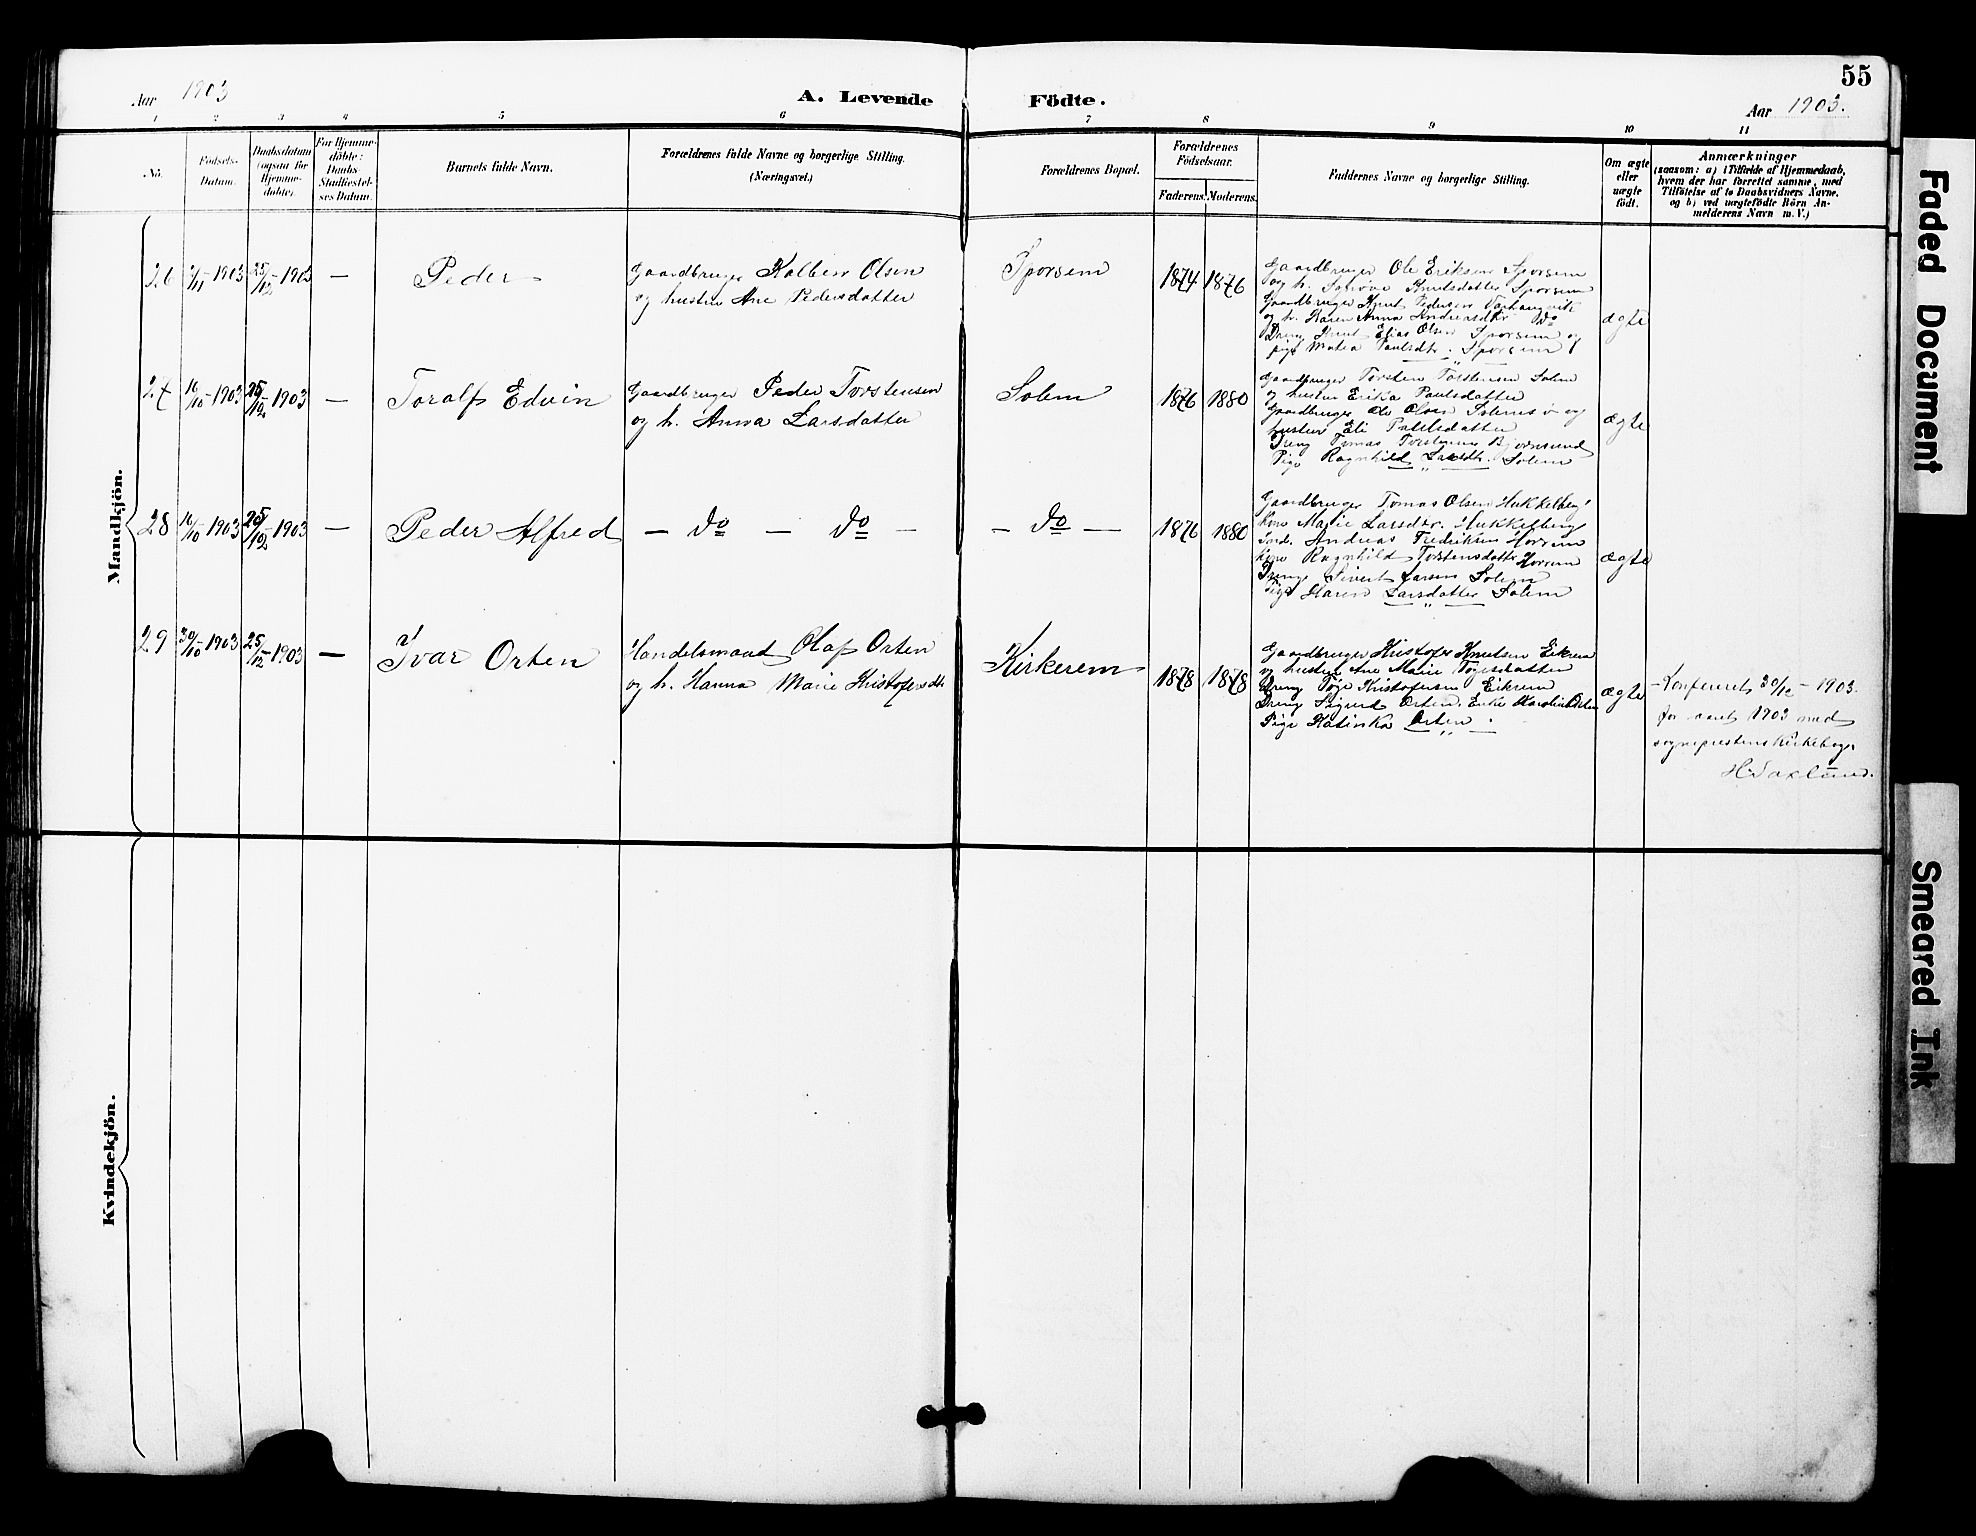 55
Aar 1903
A. Levende Födte.
Aar 1903.
1 2 3 4 5 6 7 8 9 10 11
No.
Födsels-
Datum.
Daabsdatum
(ogsaa for
Hjemme-
döbte).
For Hjemme-
döbte:
Daabs-
Stadfæstel-
ses Datum.
Barnets fulde Navn.
Forældrenes fulde Navne og borgerlige Stilling.
(Næringsvei.)
Forældrenes Bopæl.
Forældrenes
Födselsaar.
Faderens. Moderens.
Faddernes Navne og borgerlige Stilling.
Om ægte
eller
uægte
födt.
Anmærkninger
(saasom: a) i Tilfælde af Hjemmedaab,
hvem der har forrettet samme, med
Tilföielse af to Daabsvidners Navne.
og b) ved uægtefödte Börn An-
melderens Navn m. V.)
Mandkjön.
26 2/11-1903 25/12-1903 — Peder
Gaardbruger Kolben Olsen
og hustru Ane Pedersdatter
Sporsem
1874 1876
Gaardbruger Ole Eriksen Sporsem
og h. Synøve Knutsdatter Sporsem
Gaardbruger Knut Pedersen
og h. Karen Anna Andreasdtr do
Dreng Knut Elias Olsen Sporsem og
pige Matea Paulsdtr. Sporsem
ægte
27 16/10-1903 25/12-1903 — Toralf Edvin
Gaardbruger Peder Torstensen
og h. Anna Larsdatter
Solem
1876 1880
Gaardbruger Torsten Torstensen Solem
og hustru Erika Paulsdatter
Gaardbruger Ole Olsen og
hustru Eli
Dreng Tomas Torstensen Bjørnsund
Pige Ragnhild Larsdtr. Solem
ægte
28 16/10 1903 25/12-1903 — Peder Alfred
— do — do —
— do —
1876 1880
Gaardbruger Tomas Olsen Hukkelberg
Kone Marie Larsdtr. Hukkelberg
Andreas Fredriksen Horsem
Kone Ragnhild Torstensdatter Horsem
Dreng Sivert Larsen Solem
Pige Maren Larsdatter Solem
ægte
29 30/10-1903 25/12-1903 — Ivar Orten
Handelsmand Olaf Orten
og h. Hanna Marie Kristofersdtr
Kirkerem
1878 1878
Gaardbruger Kristofer Knutsen Eikrem
og hustru Ane Marie Tøgesdatter
Dreng Tøge Kristofersen Eikrem
Dreng Sigurd Orten. Enke Karoline Orten
Pige Katinka Orten.
ægte
Konfereret 30/12-1903.
for aaret 1903 med
sogneprestens kirkebog
H. Saxlund.
Kvindekjön.
Faded Document
Smeared Ink